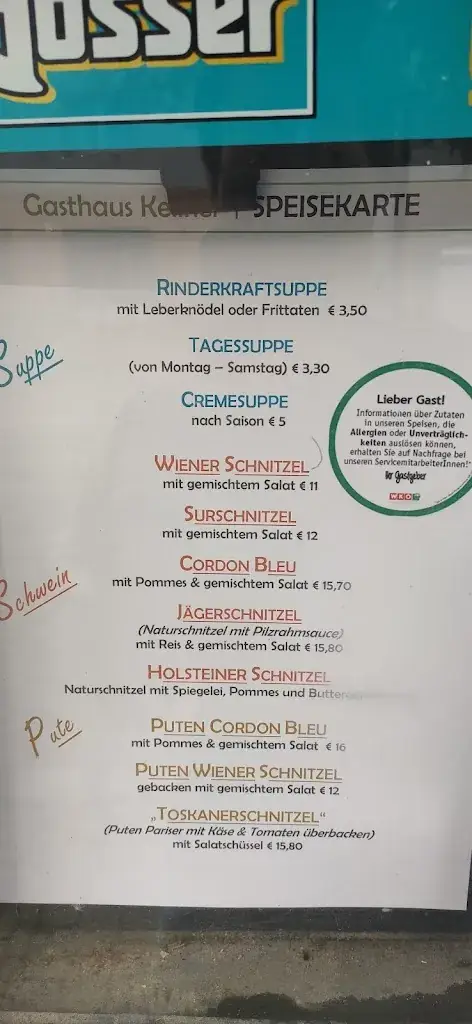 Gösser
Gasthaus | SPEISEKARTE
Suppe
RINDERKRAFTSUPPE
mit Leberknödel oder Frittaten € 3,50
TAGESSUPPE
(von Montag – Samstag) € 3,30
CREMESUPPE
nach Saison € 5
Lieber Gast!
Informationen über Zutaten
in unseren Speisen, die
Allergien oder Unverträglich-
keiten auslösen können,
erhalten Sie auf Nachfrage bei
unseren ServicemitarbeiterInnen!
Ihr Gastgeber
WKO
Schwein
WIENER SCHNITZEL
mit gemischtem Salat € 11
SURSCHNITZEL
mit gemischtem Salat € 12
CORDON BLEU
mit Pommes & gemischtem Salat € 15,70
JÄGERSCHNITZEL
(Naturschnitzel mit Pilzrahmsauce)
mit Reis & gemischtem Salat € 15,80
HOLSTEINER SCHNITZEL
Naturschnitzel mit Spiegelei, Pommes und
Pute
PUTEN CORDON BLEU
mit Pommes & gemischtem Salat € 16
PUTEN WIENER SCHNITZEL
gebacken mit gemischtem Salat € 12
„TOSKANERSCHNITZEL“
(Puten Pariser mit Käse & Tomaten überbacken)
mit Salatschüssel € 15,80